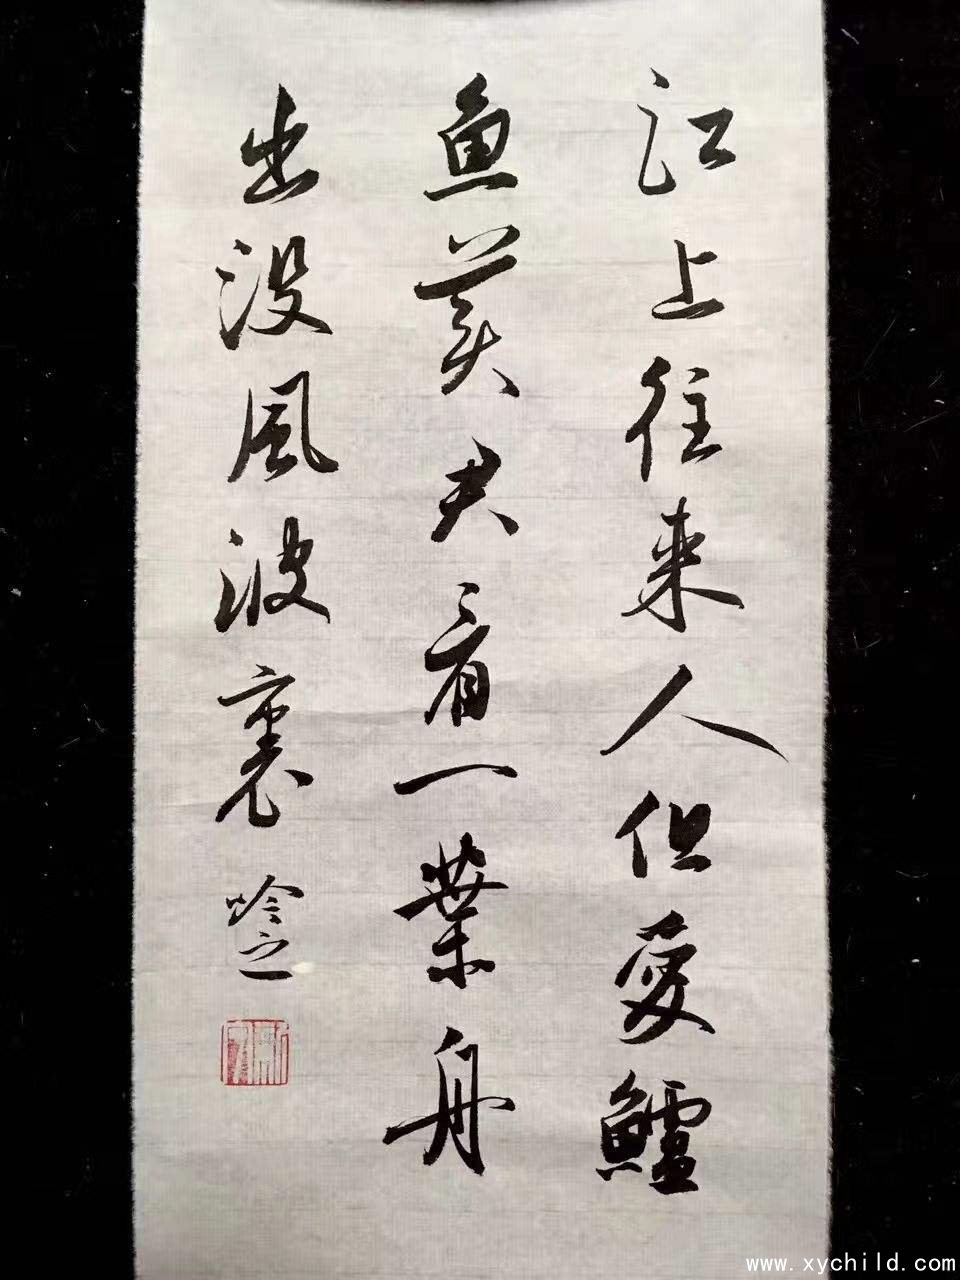 江上往来人但愛鱸
魚美君看一葉舟
出没風波裏
www.xychild.com